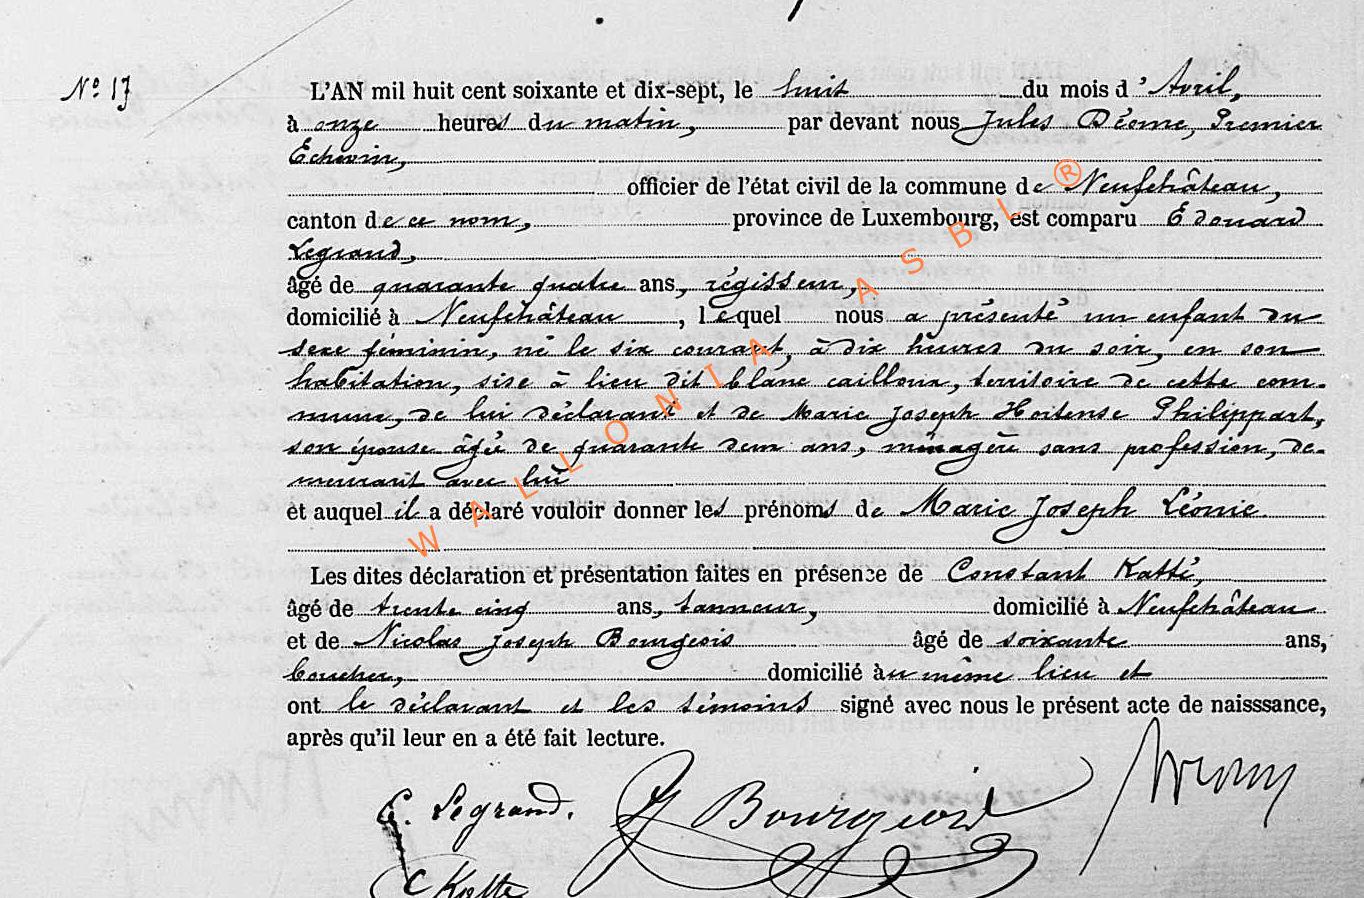 Nº 17
L'AN mil huit cent soixante et dix-sept, le huit du mois d'Avril,
à onze heures du matin, par devant nous Jules Déome, Premier
Echevin,
officier de l'état civil de la commune de Neufchâteau,
canton de ce nom, province de Luxembourg, est comparu Edouard
Legrand,
âgé de quarante quatre ans, régisseur,
domicilié à Neufchâteau, lequel nous a présenté un enfant du
sexe féminin, né le six courant, à dix heures du soir, en son
habitation, sise à lieu dit blanc cailloux, territoire de cette com-
mune, de lui déclarant et de Marie Joseph Hortense Philippart,
son épouse âgée de quarante deux ans, ménagère sans profession, de-
meurant avec lui
et auquel il a déclaré vouloir donner les prénoms de Marie Joseph Léonie
Les dites déclaration et présentation faites en présence de Constant Katté,
âgé de trente cinq ans, tanneur, domicilié à Neufchâteau
et de Nicolas Joseph Bourgeois âgé de soixante ans,
boucher, domicilié au même lieu et
ont le déclarant et les témoins signé avec nous le présent acte de naisssance,
après qu'il leur en a été fait lecture.
E. Legrand.
Bourgeois
C Katte
WALLONIA ASBL ®